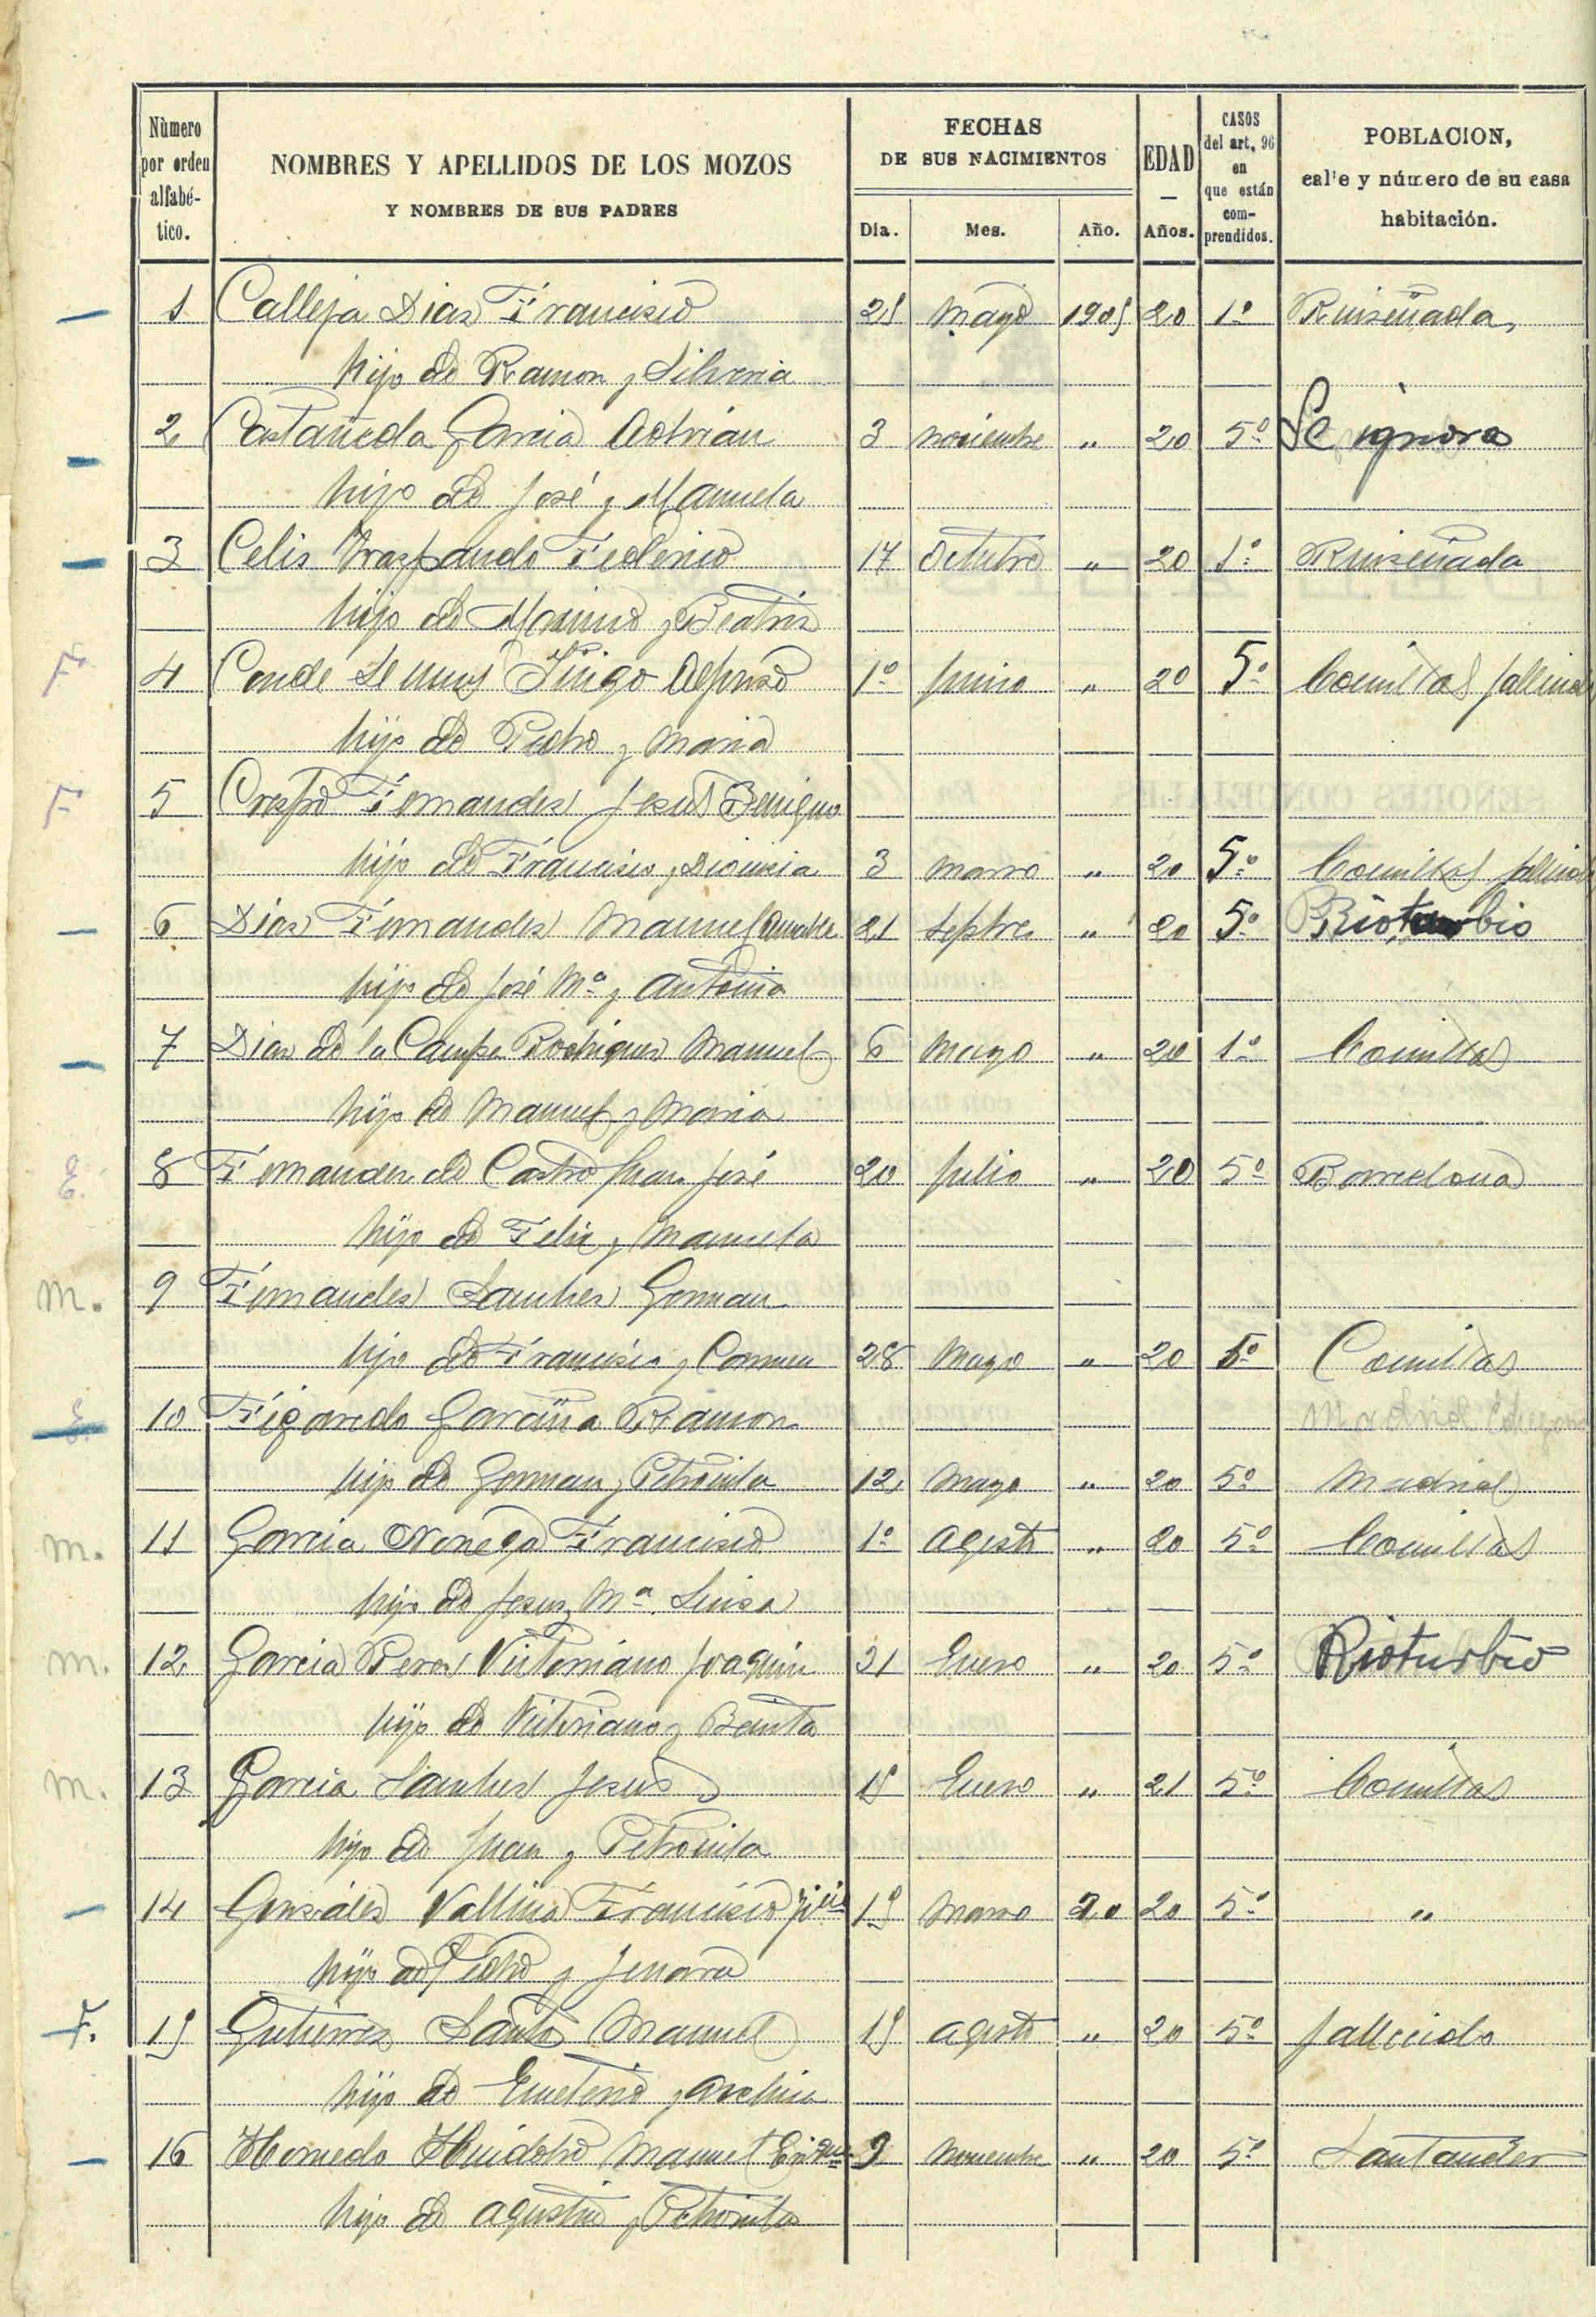 Número por orden alfabé-tico.
NOMBRES Y APELLIDOS DE LOS MOZOS
Y NOMBRES DE SUS PADRES
FECHAS
DE SUS NACIMIENTOS
Dia. Mes. Año.
EDAD — Años.
CASOS del art. 96 en que están com-prendidos.
POBLACION,
calle y número de su casa
habitación.
1 Calleja Diaz Francisco 25 Mayo 1905 20 1º Ruiseñada,
hijo de Ramon y Silveria
2 Castañeda Garcia Adrian 3 noviembre " 20 5º Se ignora
hijo de José y Manuela
3 Celis Federico 17 Octubre " 20 1º Ruiseñada
hijo de y Beatriz
F 4 Conde Iñigo Alfonso 1º junio " 20 5º Comillas
hijo de Pedro y Maria
F 5 Crespo Fernandez Jesus Benigno
hijo de Francisco y Dionisia 3 Marzo " 20 5º Comillas
6 Diaz Fernandez Manuel 21 Septbre " 20 5º Rioturbio
hijo de José Mª y Antonia
7 Diaz de la Campa Rodriguez Manuel 6 Mayo " 20 1º Comillas
hijo de Manuel y Maria
E. 8 Fernandez de Castro Juan José 20 Julio " 20 5º Barcelona
hijo de Felix y Manuela
M. 9 Fernandez Sanchez German
hijo de Francisco y Carmen 28 Mayo " 20 5º Comillas
E. 10 Figaredo Garaña Ramon Madrid
hijo de German y Petronila 12 Mayo " 20 5º Madrid
M. 11 Garcia Noriega Francisco 1º Agosto " 20 5º Comillas
hijo de Jesus y Mª Luisa
M. 12 Garcia Perez Victoriano Joaquin 31 Enero " 20 5º Rioturbio
hijo de Victoriano y Benita
M. 13 Garcia Sanchez Jesus 15 Enero " 21 5º Comillas
hijo de Juan y Petronila
14 González Vallina Francisco 15 Marzo 20 20 5º "
hijo de Pedro y Jenara
F. 15 Gutierrez Santos Manuel 15 agosto " 20 5º fallecido
hijo de Emeterio y
16 Huidobro Manuel Enrique 9 Noviembre " 20 5º Santander
hijo de Agustin y Petronila